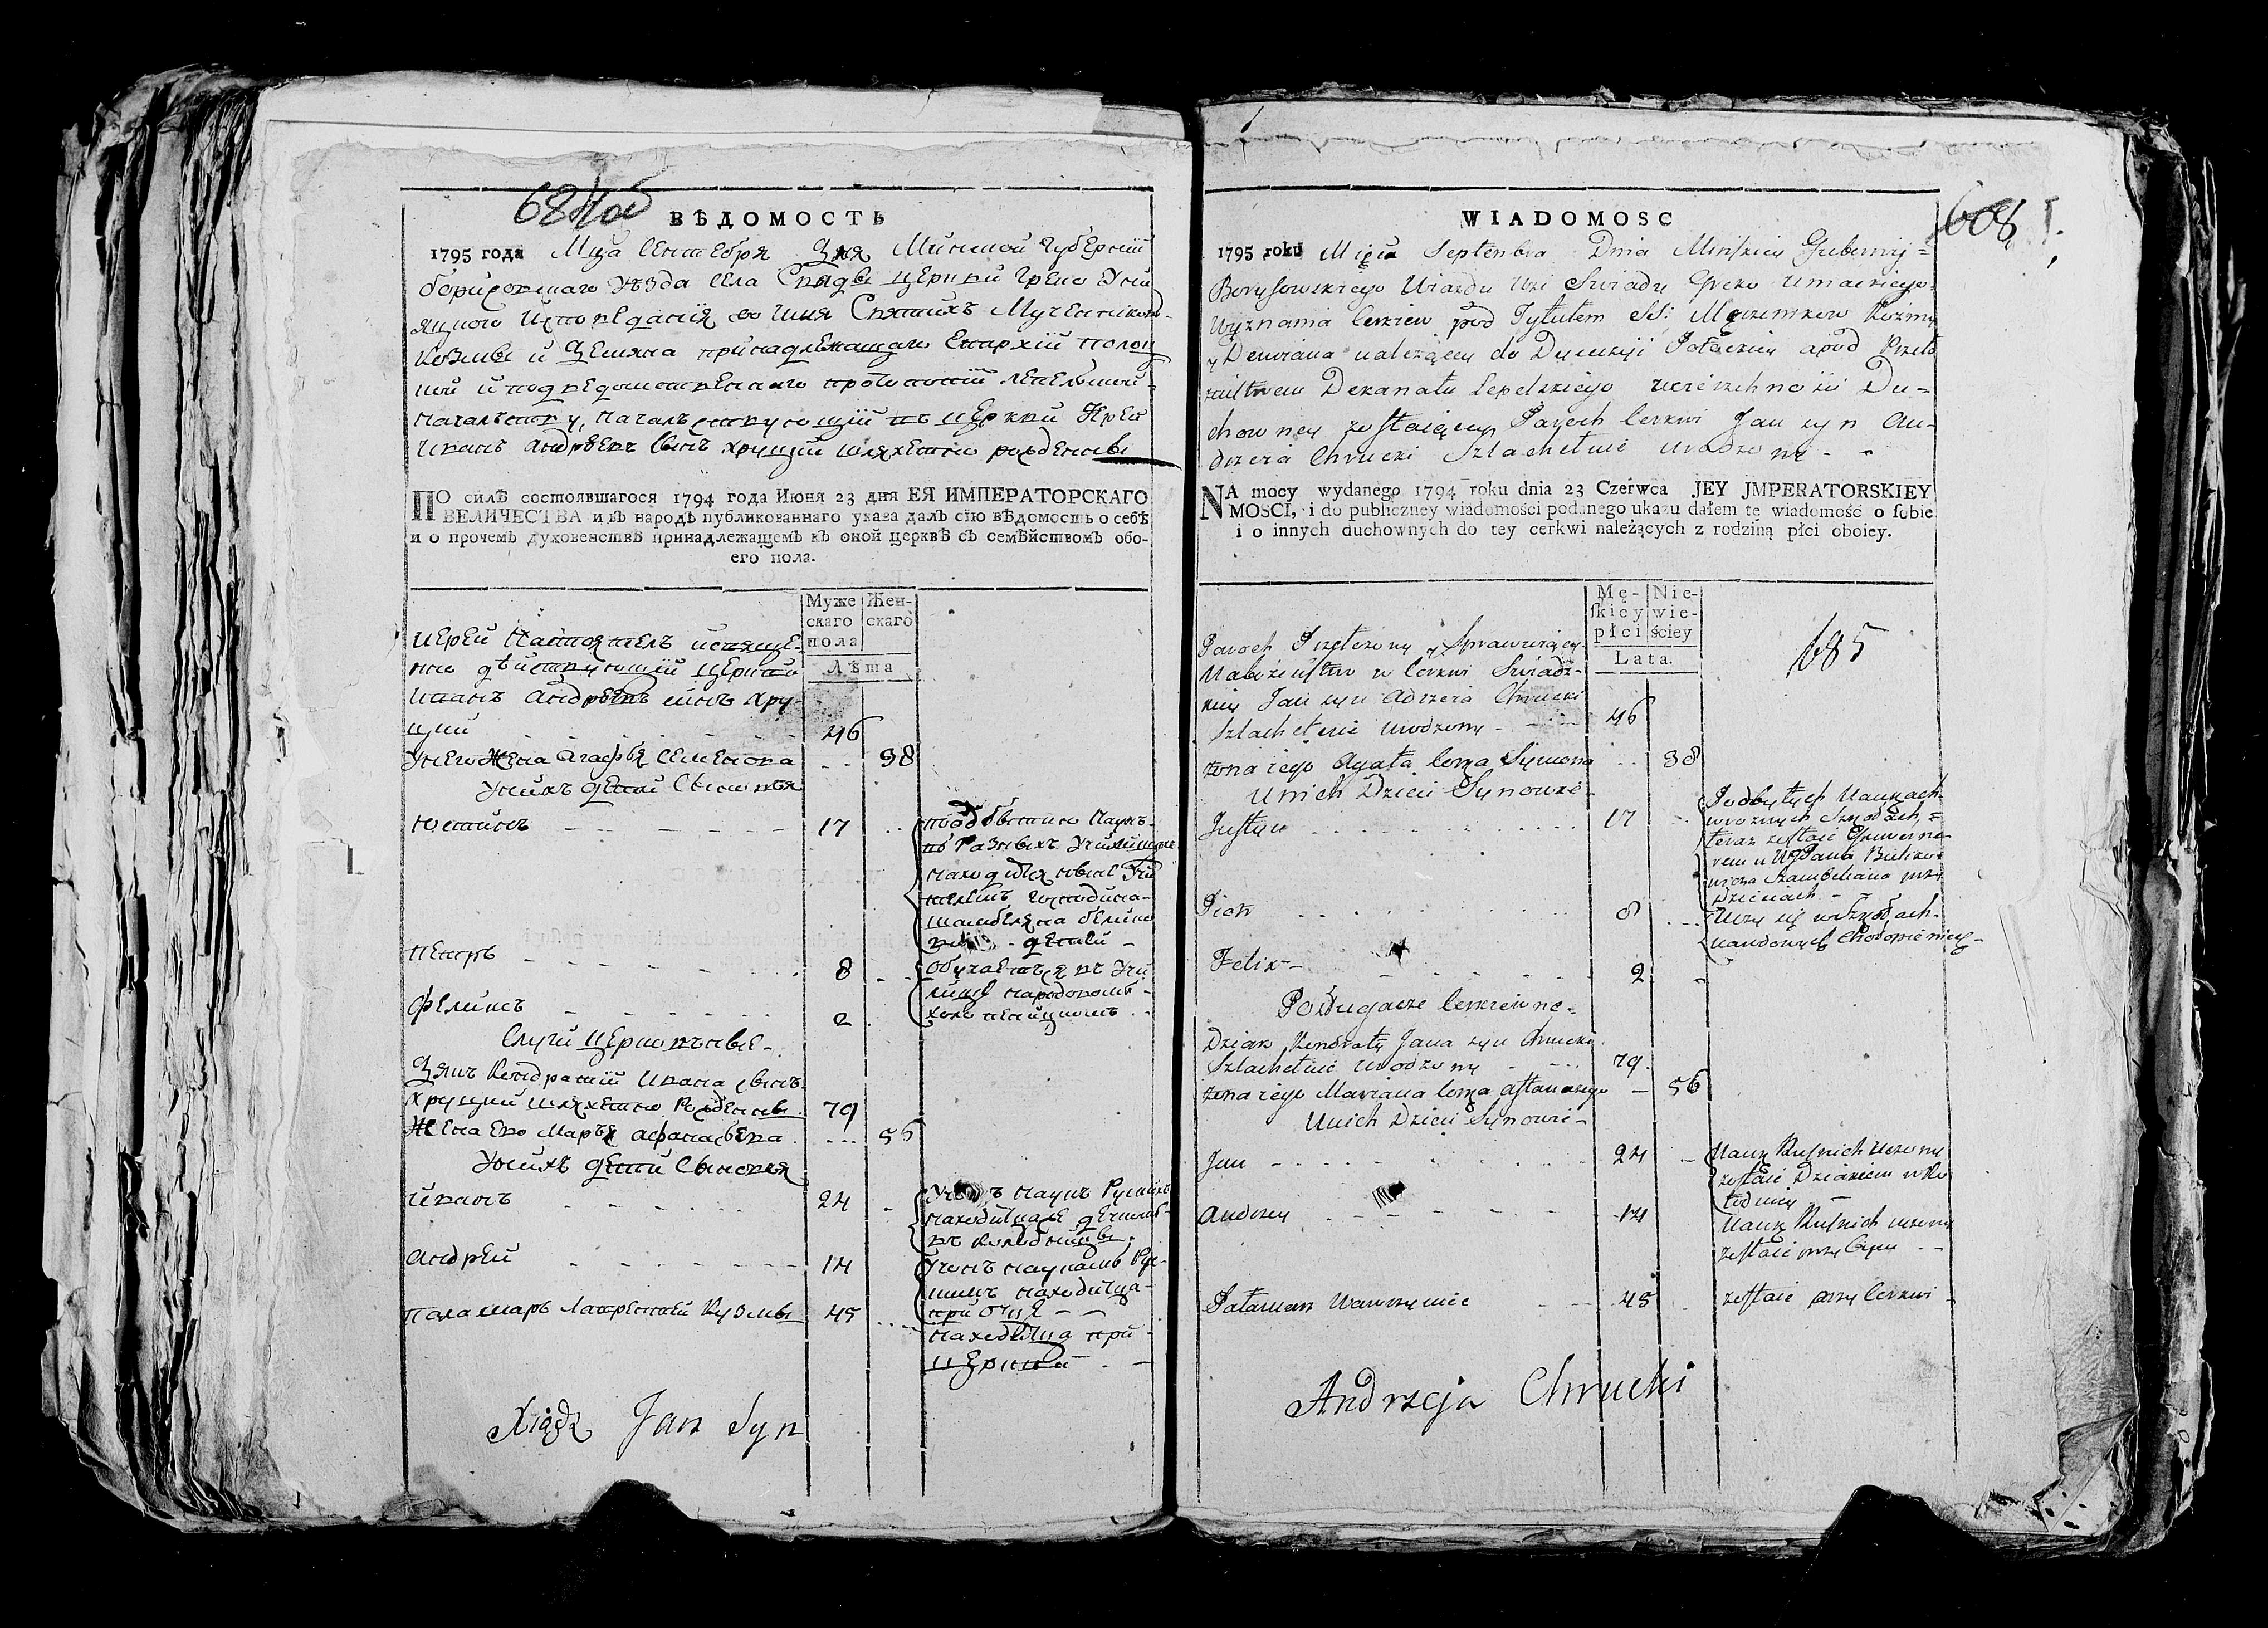 ВѢДОМОСТЬ
1795 года Мца Сентебря Дня Минской Губерніи
борисовскаго уѣзда села Свяды церкви Греко Уни
яцкого исповеданія во имя Святихъ Мученіковъ
Козмы и Демяна принадлежащаго Епархіи полоц
кой и подведомственаго протопопіи лепельской
началству, началствующій въ церкви Іерей
Иванъ Андрѣевъ сынъ Хруцкій шляхетно рожденны
ПО силѣ состоявшагося 1794 года Июня 23 дня ЕЯ ИМПЕРАТОРСКАГО
ВЕЛИЧЕСТВА и въ народъ публикованнаго указа далъ сїю вѣдомость о себѣ
и о прочемъ духовенствѣ принадлежащемъ къ оной церквѣ съ семѣйствомъ обо-
его пола.
Муже
скаго
пола
Жен-
скаго
Лѣта
Иерей Настоятель и священ-
но дѣйствующій церкви
Иванъ Андрѣевъ синъ Хру-
цкий 46
У него Жена Агафья Семенова 38
У нихъ дети Сыновья
Юстинъ 17
по обытию Наукъ
въ разныхъ Училищахъ
находится ныне
Господина
шамбеляна
детей
Петръ 8
обучается въ Учи
лище народномъ
холопеницкомъ
Феликсъ 2
Слуги церковъные
Дякъ Кондратій Ивана сынъ
Хруцкий шляхетно рожденны 79
Жена его Марья Афанасьева 56
У нихъ дети Сыновья
Иванъ 24
наукъ Рускихъ
находица дечкомъ
въ
Андрей 14
Учонъ наукамъ Рус-
кимъ находица
при отце
Паламарь Лаврентей Кузмы 45
находица при
церкви
Xiądz Jan Syn
WIADOMOSC
608
1795 roku Mięca Septembra Dnia Minskiey Gubernij
Borysowskiego Uiazdu Wsi Swiady Greko Uniackiego
Wyznania Cerkiew pod Tytułem SS: Męczennikow Kozmy
y Demiana należącey do Dyecezyi Połockiey a pod Przeło
żenstwem Dekanatu Lepelskiego zwierzchnosci Du-
chowney zostaiącey Paroch Cerkwi Jan syn An-
drzeia Chrucki Szlachetnie urodzony
NA mocy wydanego 1794 roku dnia 23 Czerwca JEY JMPERATORSKIEY
MOSCI, i do publiczney wiadomości podanego ukazu dałem tę wiadomość o sobie
i o innych duchownych do tey cerkwi należących z rodziną płci oboiey.
Mę-
skiey
płci
Nie-
wie-
ściey
Lata.
685
Paroch Przełożony y Sprawuiący
Nabożeństwo w Cerkwi Swiadz-
kiey Jan syn Adrzeia Chrucki
Szlachetnie urodzony 46
żona iego Agata Corka Symona 38
U nich Dzieci Synowie
Justyn 17
Po odbytych Naukach
w roznych Szkołach,
teraz zostaie Guwerno-
rem u WJPana
Szambelana przy
Dzieciach
Piotr 8
Uczy się w Szkołach
narodowych Chołopienickich
Felix 2
Posługacze Cerkiewne
Dziak Kondraty Jana syn Chrucki
Szlachetnie urodzony 79
żona iego Maryana Corka Astanazego 56
U nich Dzieci Synowie
Jan 24
Nauk Ruskich uczony
zostaie Dziakiem w Ko
łodnicy
Andrzey 14
Nauk Ruskich uczony
zostaie przy Oycu
Pałamarz Wawrzyniec 45 zostaie przy Cerkwi
Andrzeja Chrucki